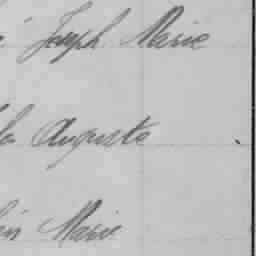 Joseph Marie
Auguste
Marie